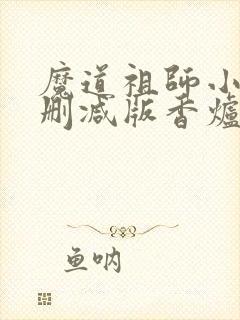 魔道祖師小
刪減版香爐
鱼呐